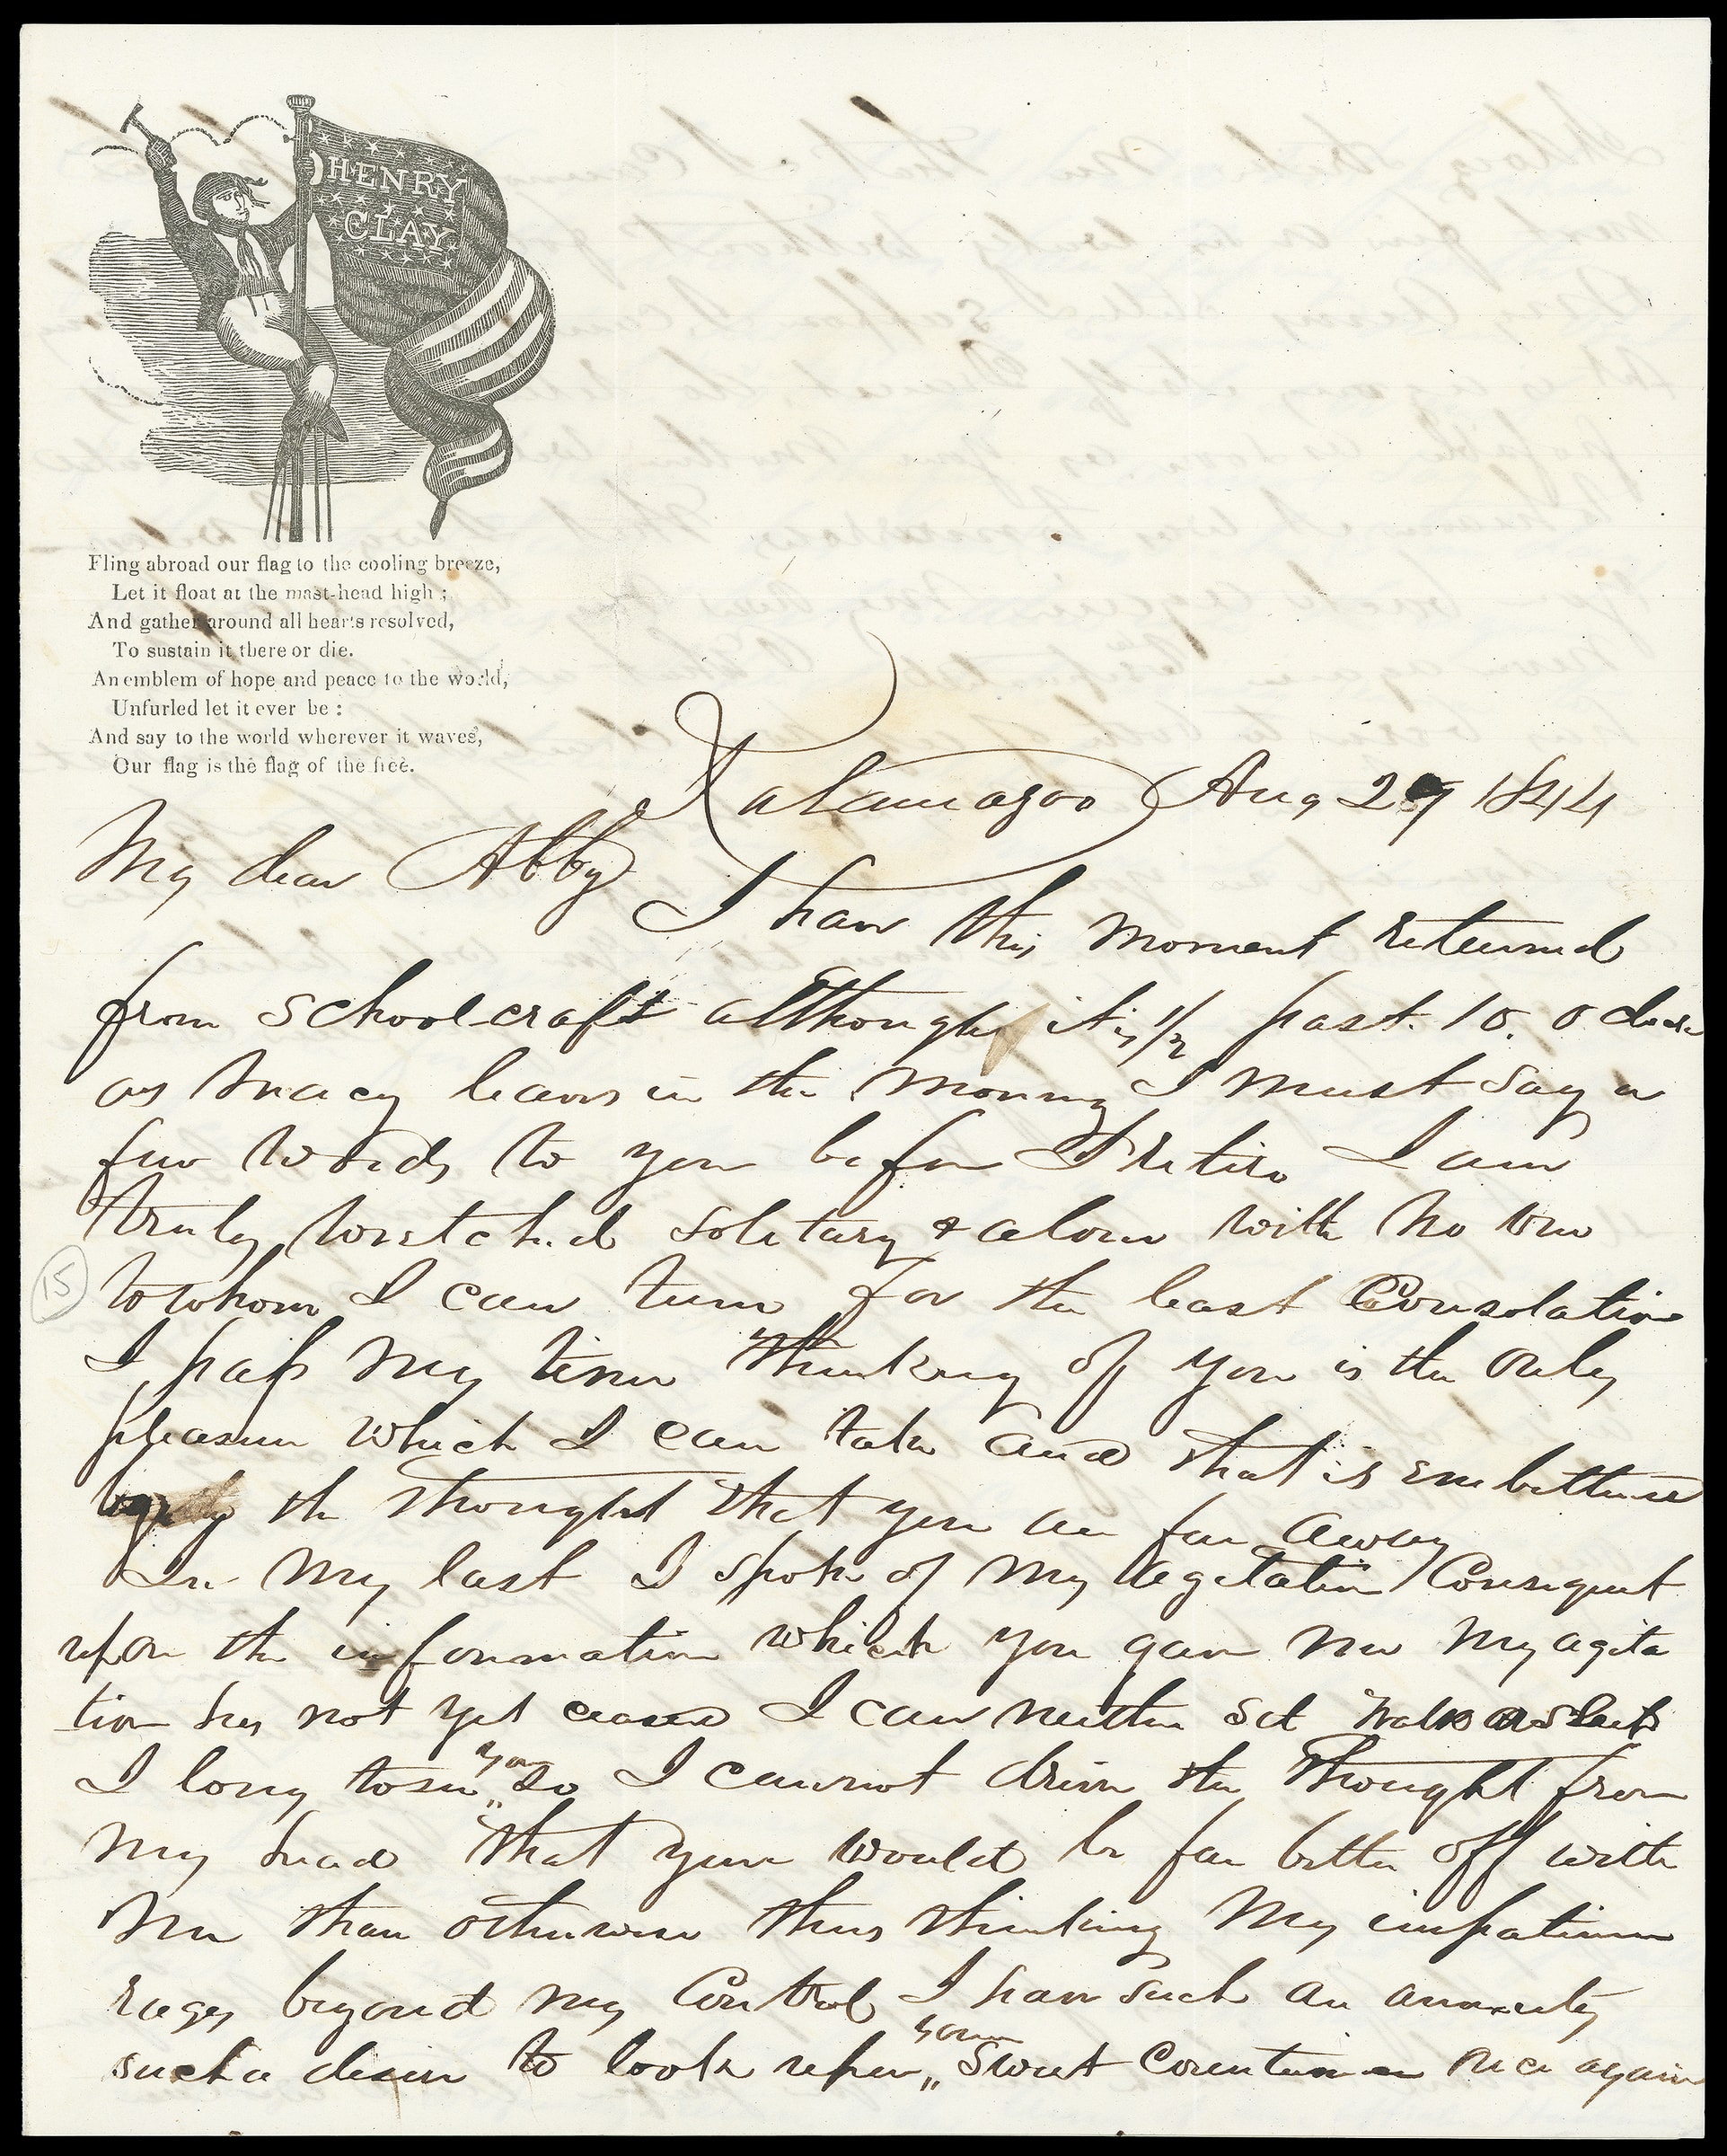 HENRY
CLAY
Fling abroad our flag to the cooling breeze,
Let it float at the mast-head high ;
And gather around all hearts resolved,
To sustain it there or die.
An emblem of hope and peace to the world,
Unfurled let it ever be :
And say to the world wherever it waves,
Our flag is the flag of the free.
Kalamazoo Aug 29 1844
My dear Abby
I have this moment returned
from Schoolcraft although it is 1/2 past. 10. o clock
as Tracy leaves in the morning I must say a
few words to you before I retire I am
truly wretched solitary & alone with no one
to whom I can turn for the least Consolation
I pass my time thinking of you is the only
pleasure which I can take and that is embittered
by the thought that you are far away
In my last I spoke of my agitation Consequent
upon the information which you gave me My agita
tion has not yet ceased I can neither set walk or sleep
I long to see you so I cannot drive the thought from
my head that you would be far better off with
me than otherwise thus thinking My impatience
rages beyond my Control I have such an anxiety
such a desire to look upon your Sweet Countenance once again
15